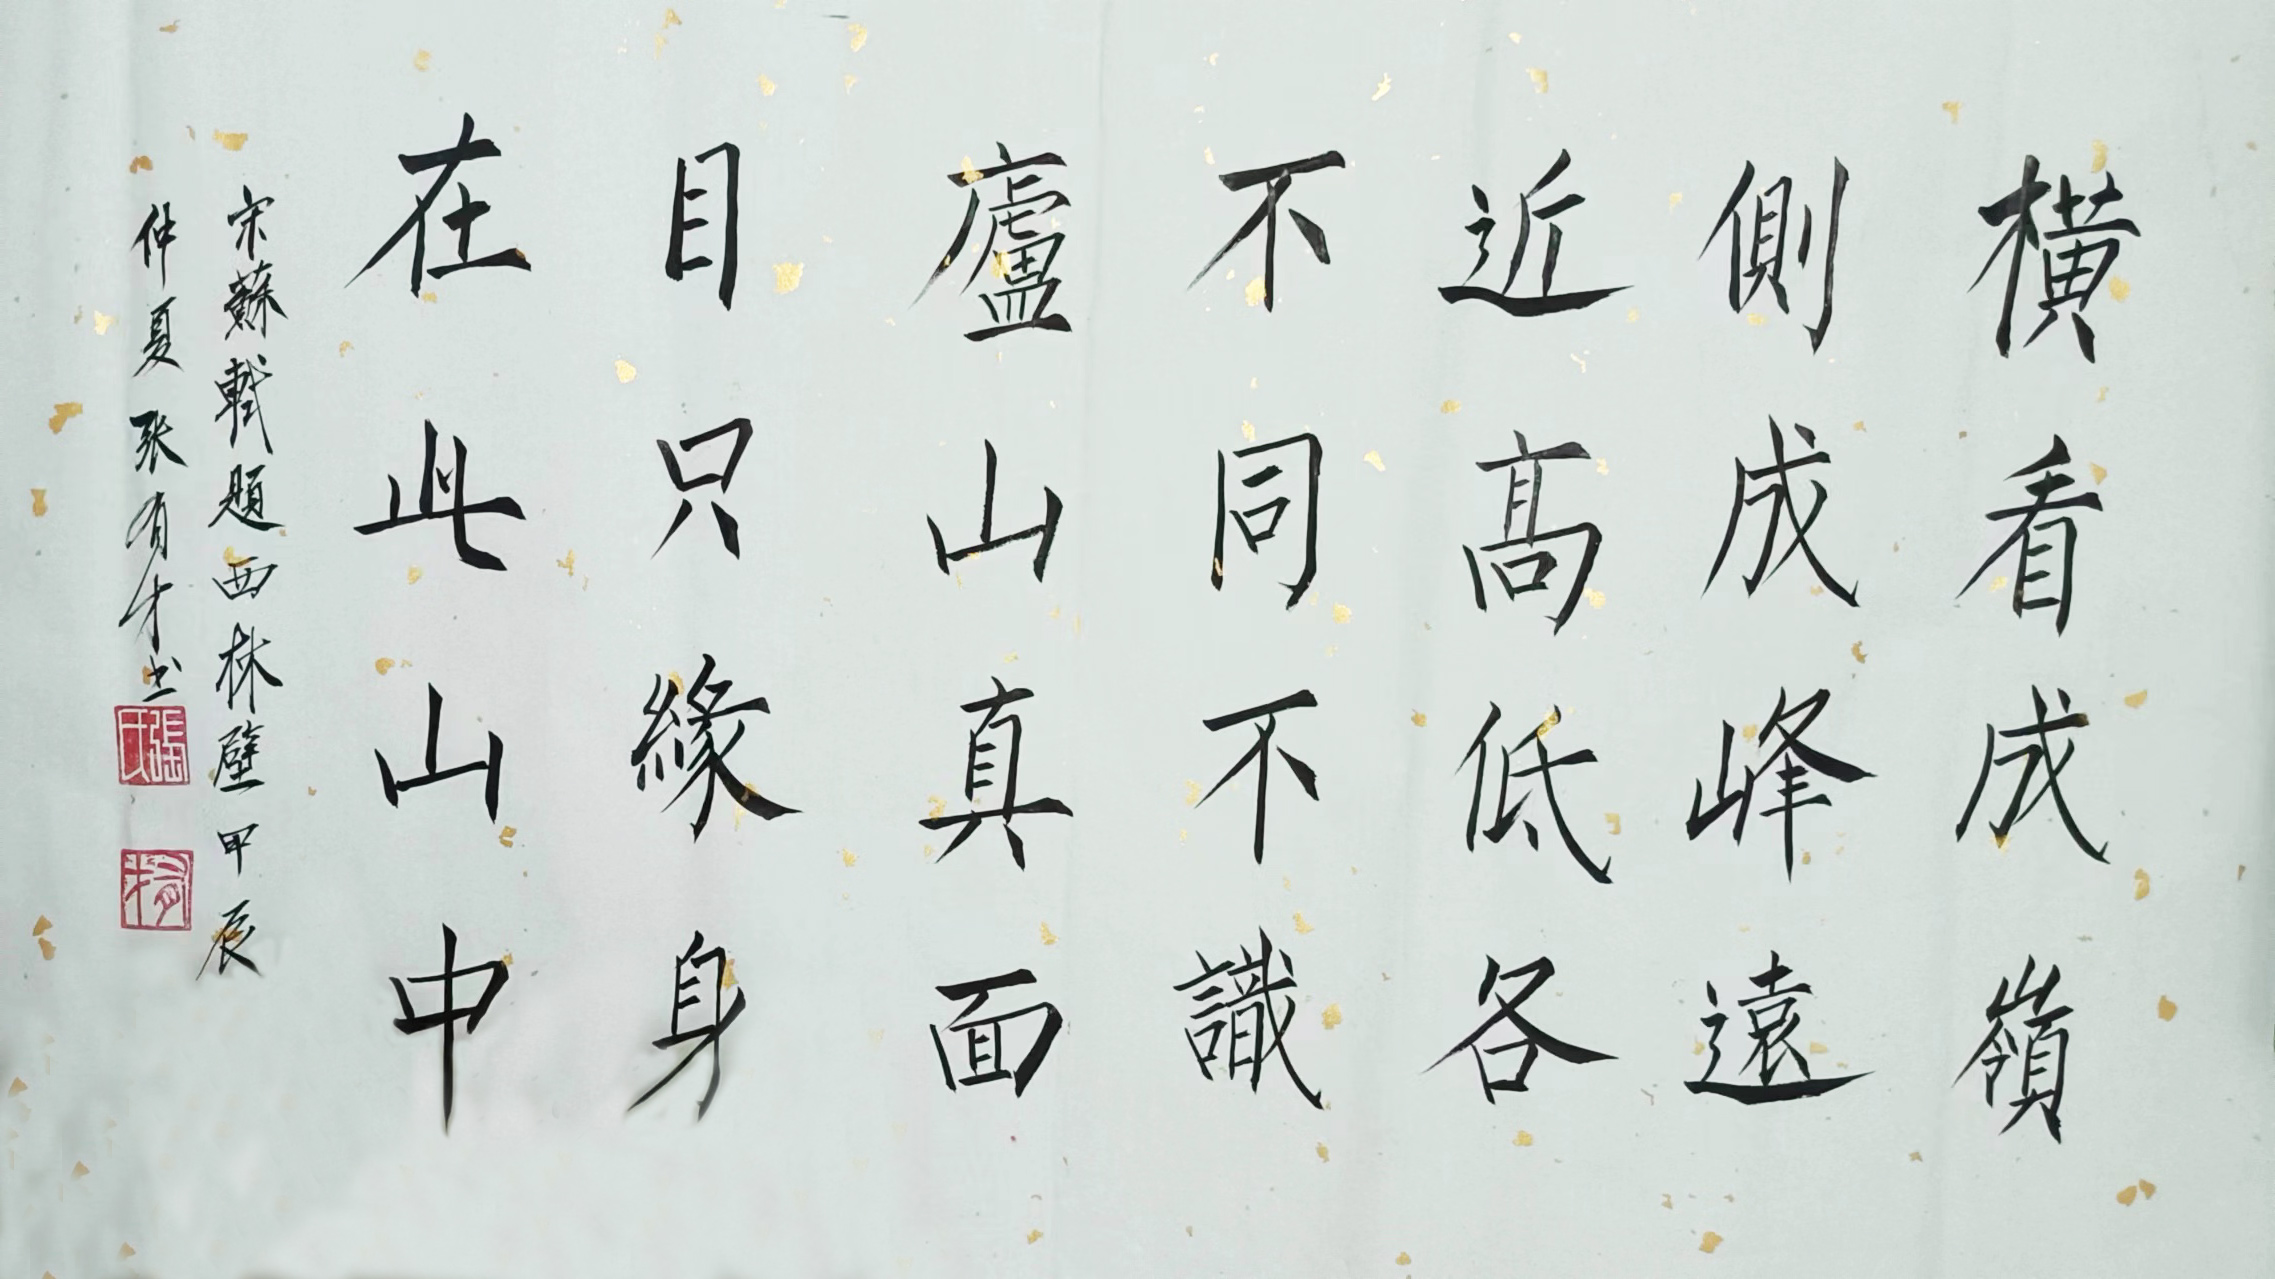 橫看成嶺
側成峰遠
近高低各
不同不識
廬山真面
目只緣身
在此山中
宋蘇軾題西林壁甲辰
仲夏張有才书
張氏
有才